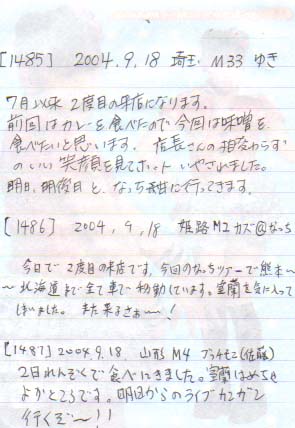 [1485] 2004.9.18 埼玉 M33 ゆき
7月以来 2度目の来店になります。
前回はカレーを食べたので今回は味噌を
食べたいと思います。店長さんの相変わらず
のいい笑顔を見てホットいやされました。
明日、明後日と、なっち祭に行ってきます。
[1486] 2004, 9, 18 姫路 M2 カズ@なっち
今日で2度目の来店です。今回のなっちツアーで熊本~
~北海道まで全て車で移動しています。室蘭を気に入って
しまいました。また来るさぁ~!
[1487] 2004.9.18. 山形 M4 プラチモニ(佐藤)
2日れんぞくで食べにきました。室蘭はめちゃ
よかとこです。明日からのライブガンガン
行くぞ~!!